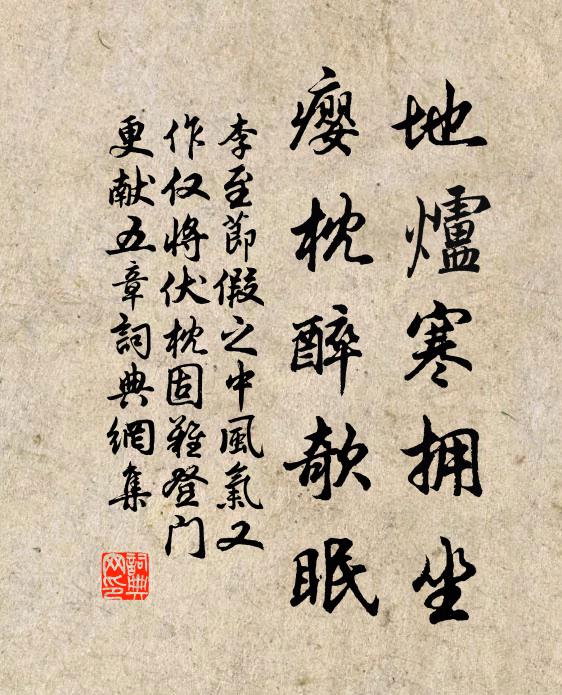 地爐寒拥坐
瘿枕醉欹眠
李至節假之中風氣又
作仅將伏枕固難登门
更献五章詞典網集
詞典网印